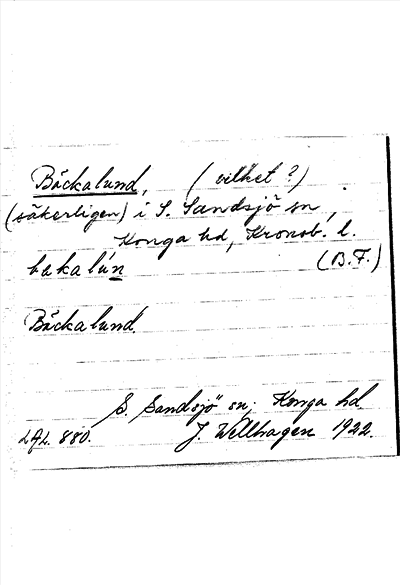 Bäckalund, (vilket?)
(säkerligen) i S. Sandsjö sn,
Konga hd, Kronob. l.
bakalún (B.F.)
Bäckalund.
S. Sandsjö sn, Konga hd.
LAL. 880. J. Wellhagen 1922.